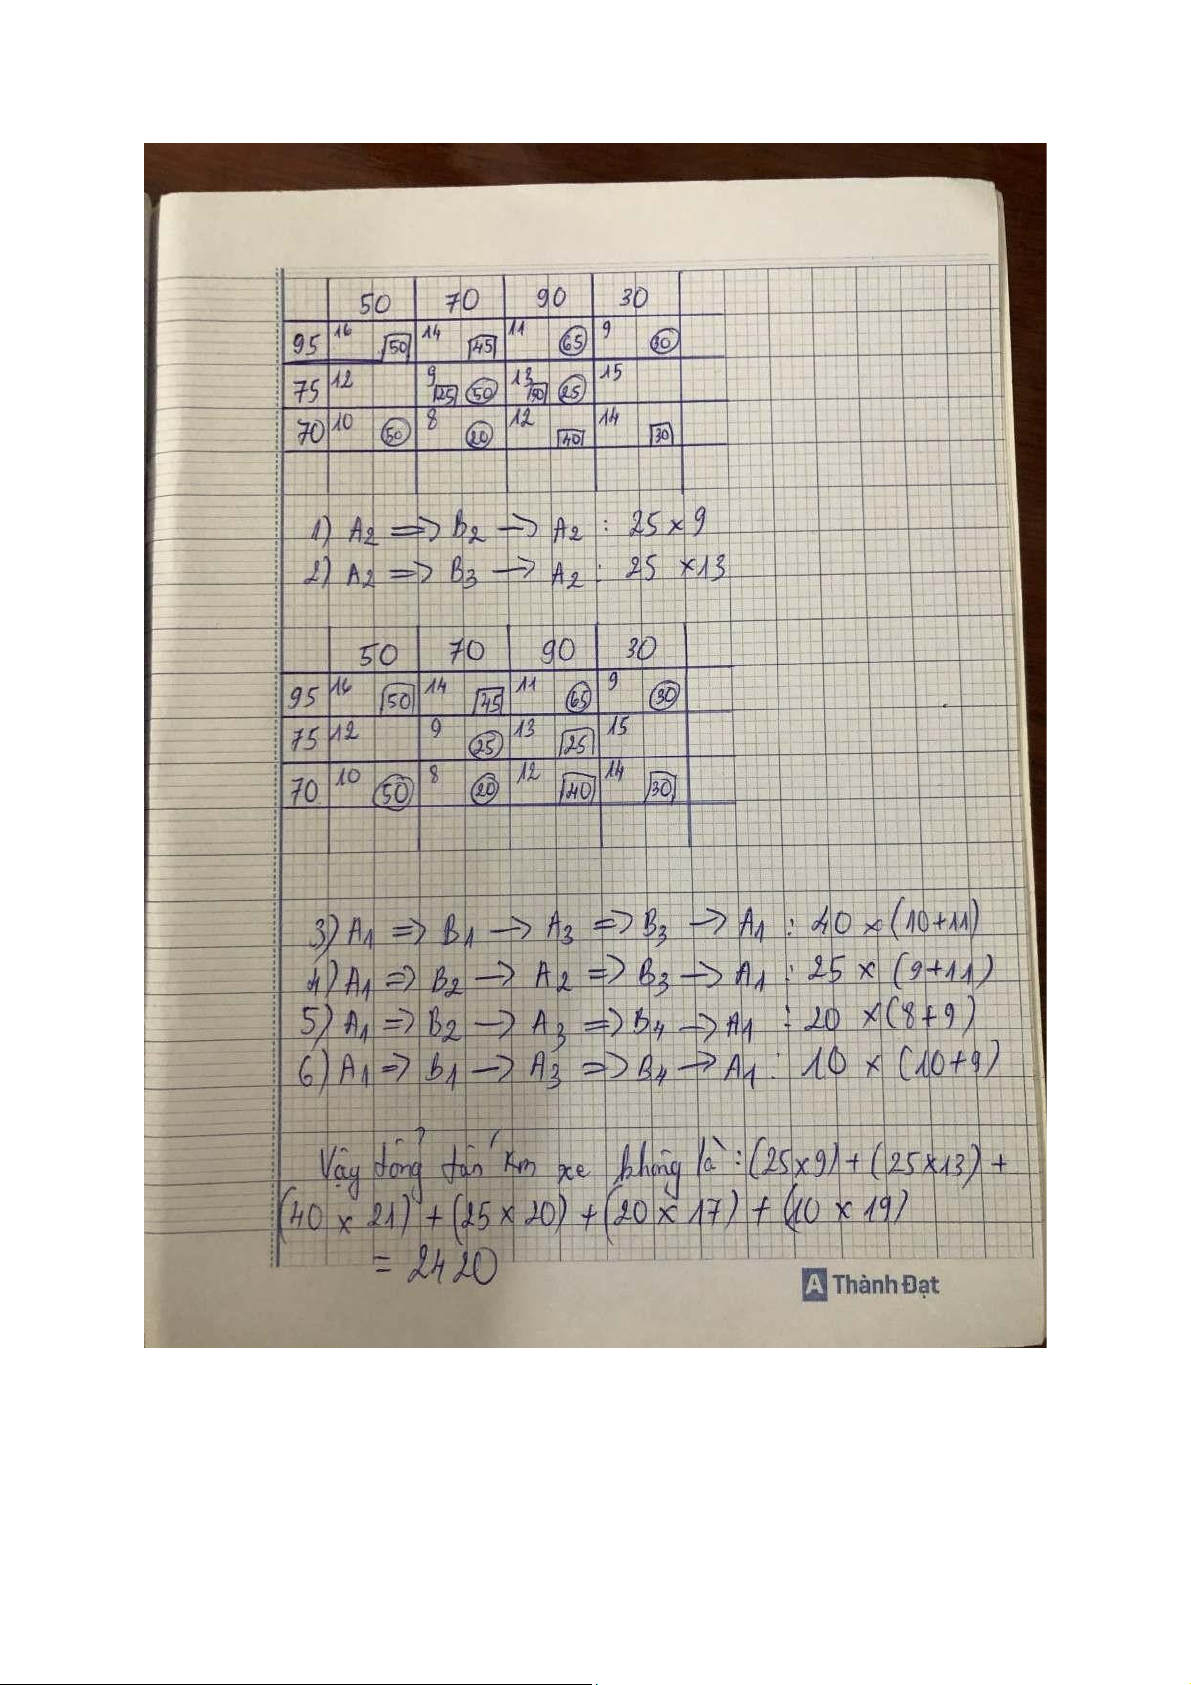 50 70 90 30
95 16 50 14 45 11 65 9 30
75 12 9 25 50 13 50 25 15
70 10 50 8 20 12 40 14 30
1) A2 => B2 -> A2 : 25 x 9
2) A2 => B3 -> A2 : 25 x 13
50 70 90 30
95 16 50 14 45 11 65 9 30
75 12 9 25 13 25 15
70 10 50 8 20 12 40 14 30
3) A1 => B1 -> A3 => B3 -> A1 : 40 x (10+11)
4) A1 => B2 -> A2 => B3 -> A1 : 25 x (9+11)
5) A1 => B2 -> A3 => B4 -> A1 : 20 x (8+9)
6) A1 => B1 -> A3 => B4 -> A1 : 10 x (10+9)
Vậy tổng tấn Km xe không là : (25x9) + (25x13) +
(40 x 21) + (25 x 20) + (20 x 17) + (10 x 19)
= 2420
A Thành Đạt